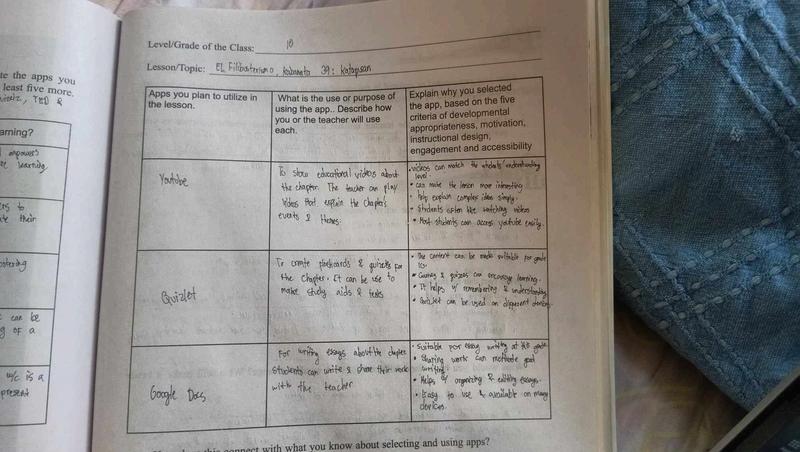 te the apps you
least five more.
TED &
arning?
learning
ers to
te their
ostering
c can be
g of a
w/c is a
present
Level/Grade of the Class: 10
Lesson/Topic: EL Filibusterismo, kabanata 39: katapusan
Apps you plan to utilize in
the lesson.
What is the use or purpose of
using the app.. Describe how
you or the teacher will use
each.
Explain why you selected
the app, based on the five
criteria of developmental
appropriateness, motivation,
instructional design,
engagement and accessibility
Youtube
To show educational videos about
the chapter. The teacher can play
videos that explain the chapter's
events & themes.
• videos can match the students' understanding
level.
• can make the lesson more interesting
• help explain complex ideas simply.
• Students often like watching videos
• Most students can access youtube easily.
Quizlet
To create flashcards & quizzes for
the chapter. It can be use to
make study aids & tests
• The content can be made suitable for grade
10.
• Games & quizzes can encourage learning.
• It helps w/ remembering & understanding
• Quizlet can be used on different
Google Docs
For writing essays about the chapter
students can write & share their work
with the teacher
• Suitable for essay writing at this grade
• Sharing work can motivate good
writing.
• Helps w/ organizing & editing essays.
• Easy to use & available on many
devices.
this connect with what you know about selecting and using apps?